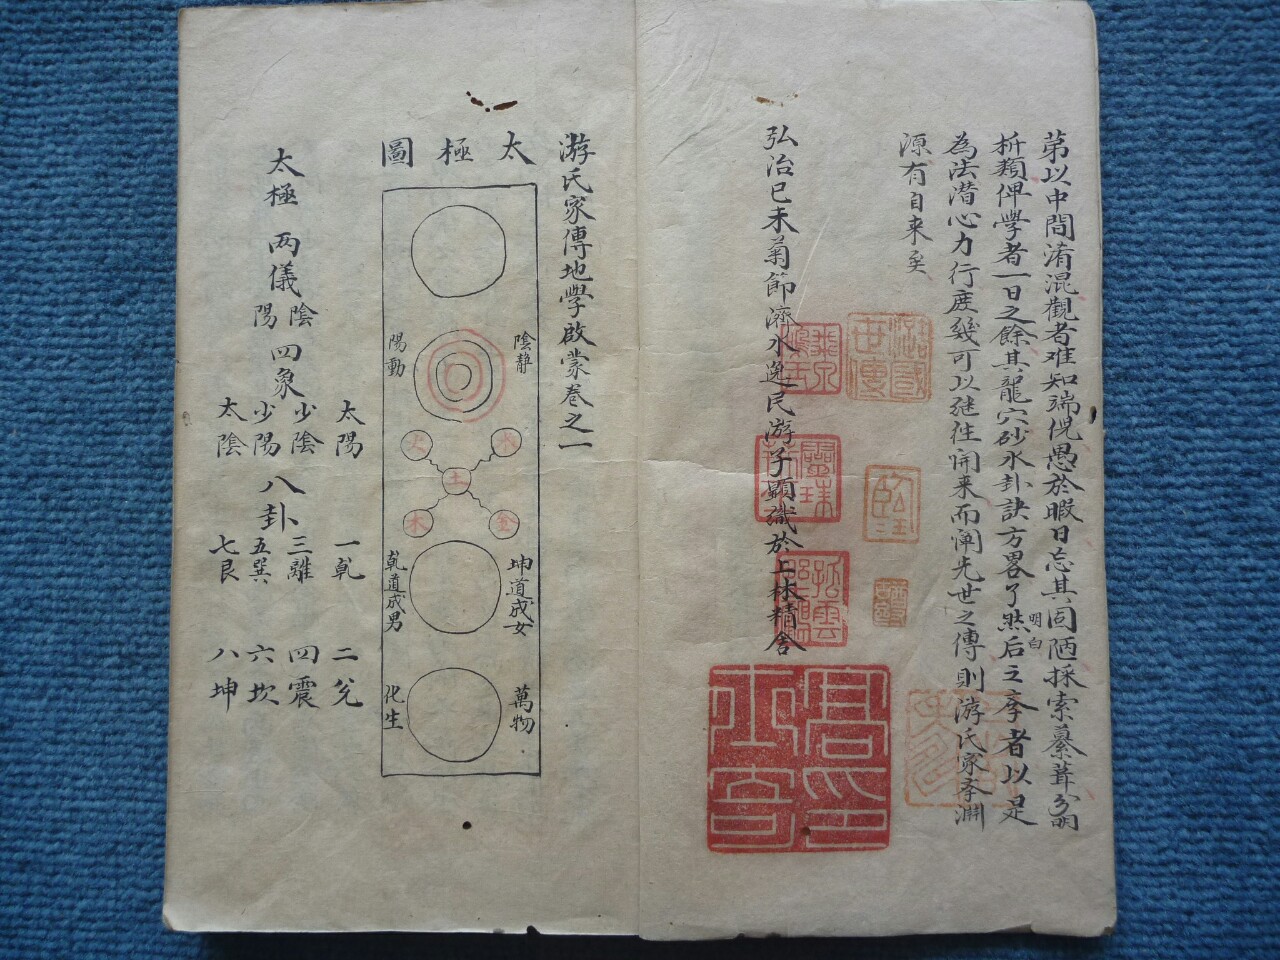 第以中間淆混觀者难知端倪愚於暇日忘其固陋採索纂葺分朙
析類俾學者一日之餘其龍穴砂水卦訣方畧了然后之孝者以是
明白
為法潜心力行庶幾可以継往開来而闡先世之傳則游氏家孝淵
源有自来矣
弘治己未菊節濟水逸民游子顯識於上林精舍
游氏家傳地學啟蒙卷之一
太極圖
陰静
陽動
水
火
土
金
木
坤道成女
乾道成男
萬物
化生
太極 两儀 陰 陽 四象 太陽 少陰 少陽 太陰 八卦 一乾 二兊 三離 四震 五巽 六坎 七艮 八坤